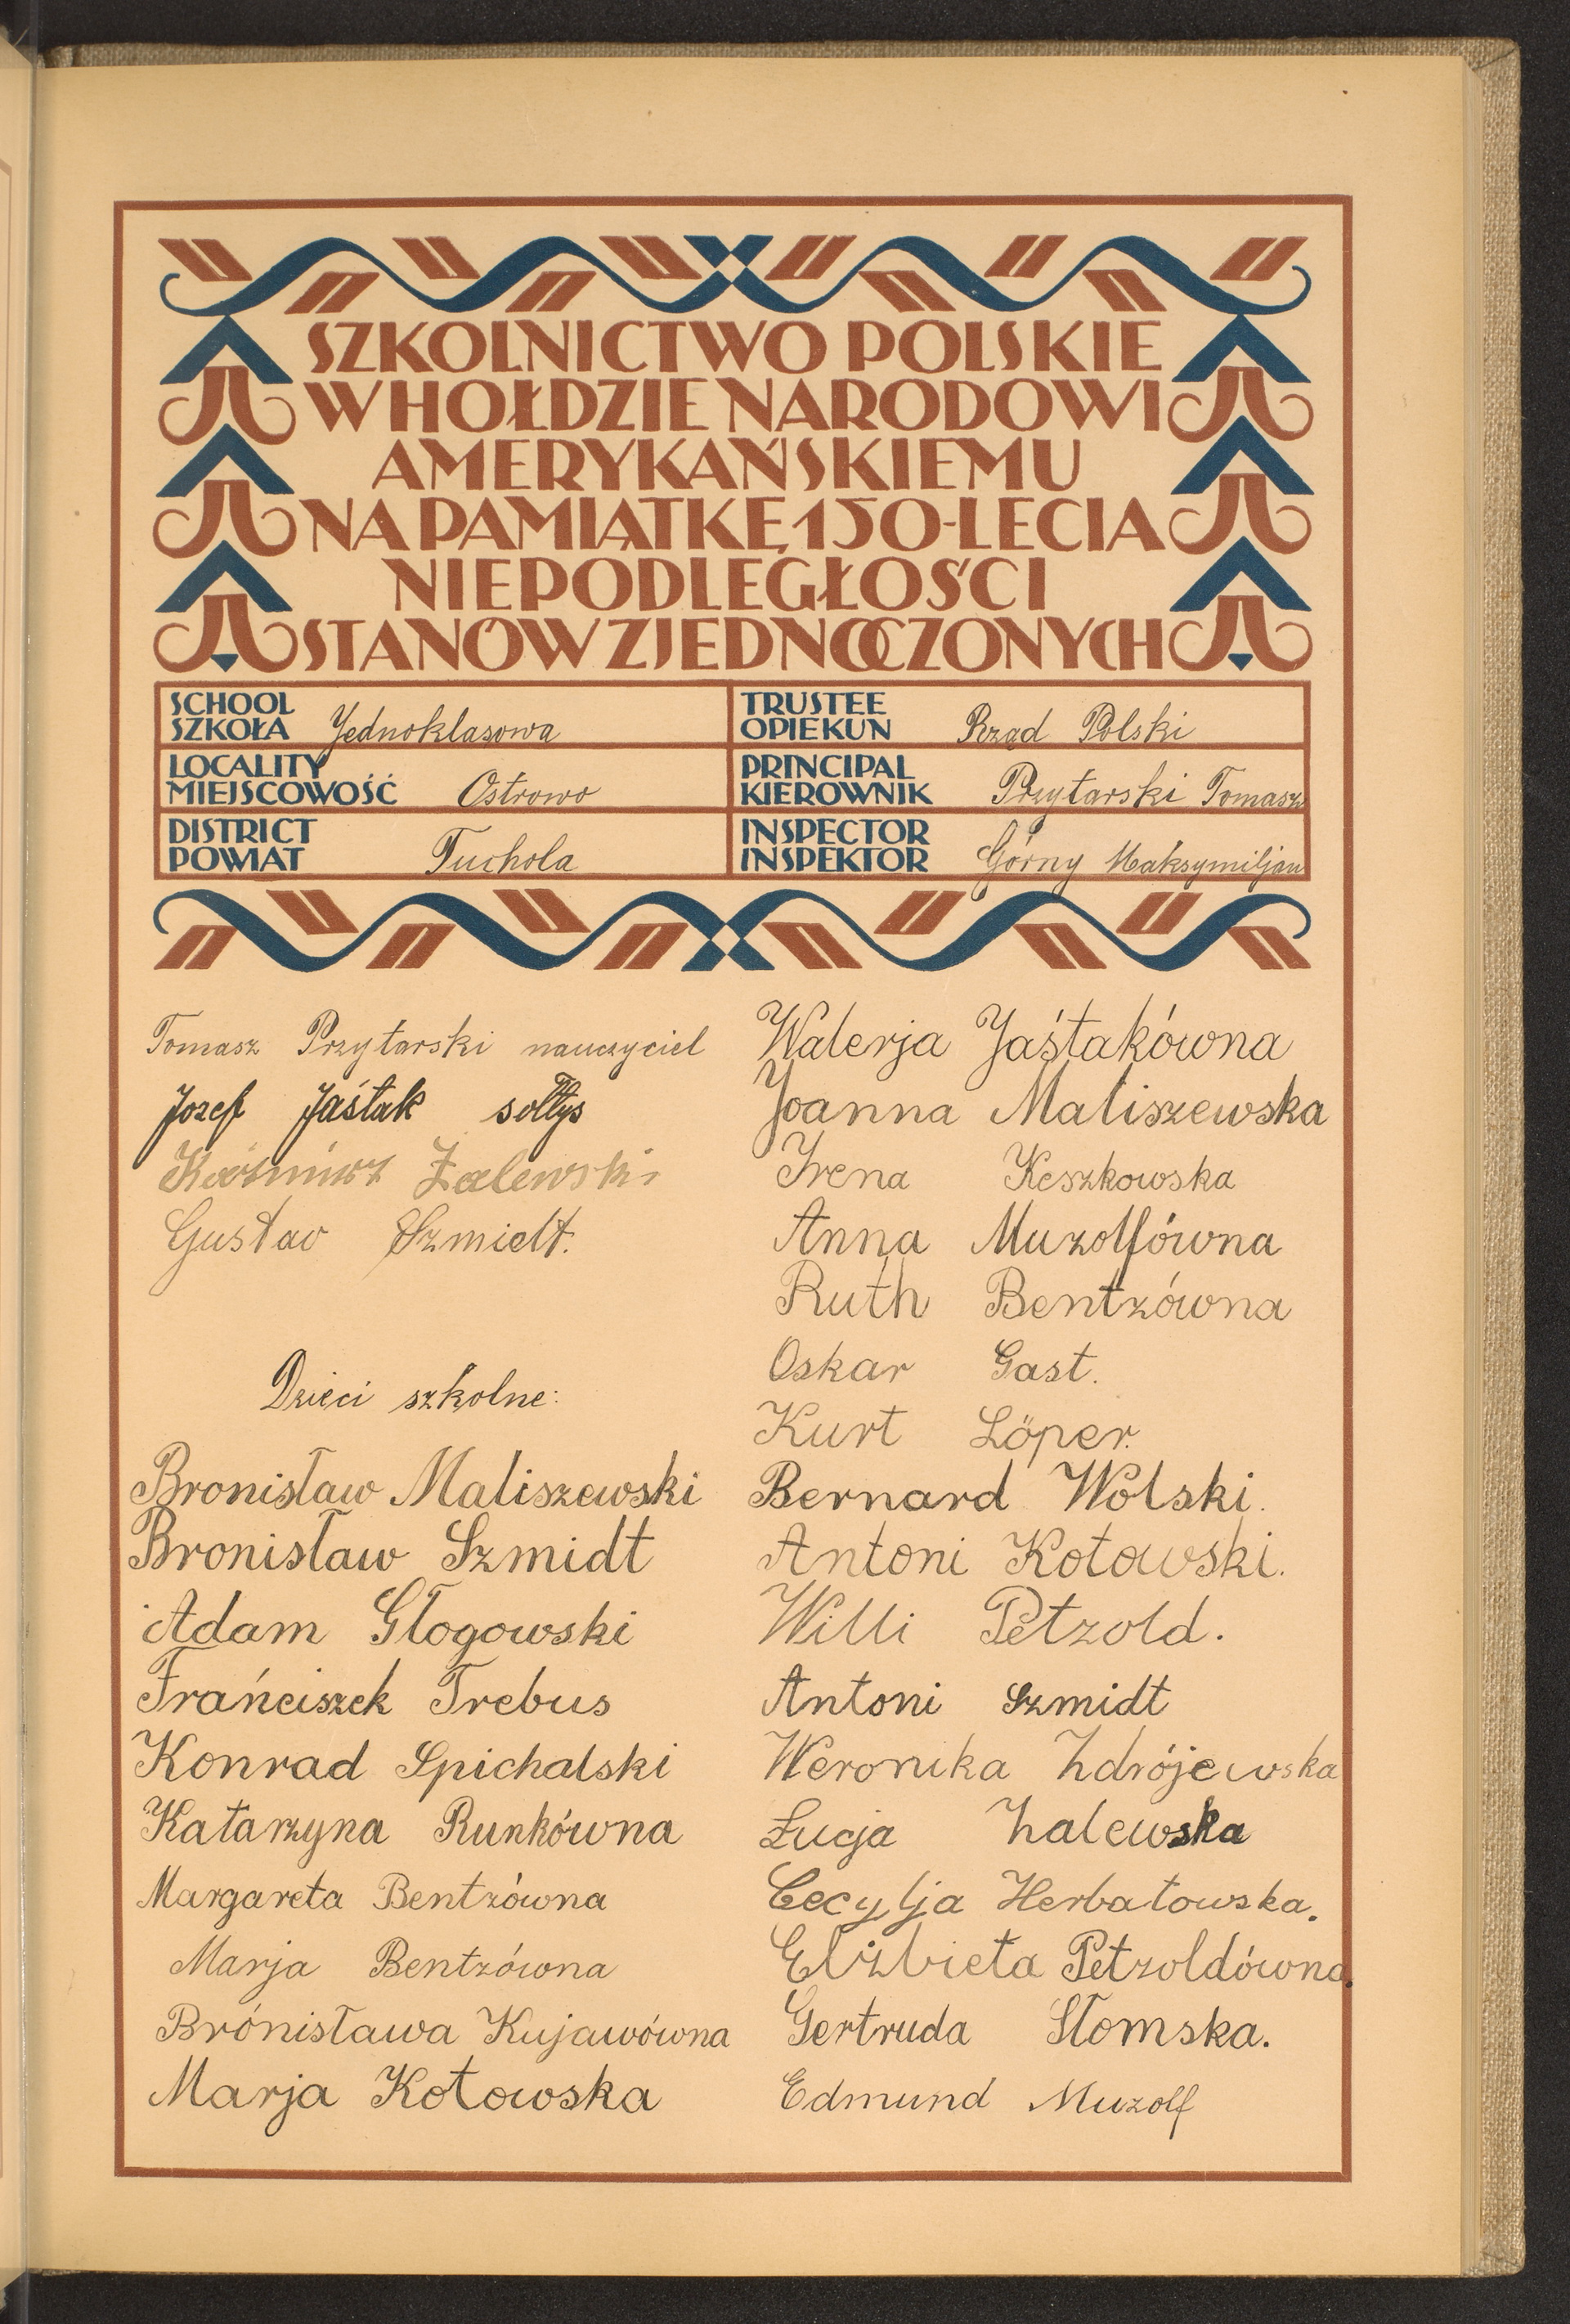 SZKOLNICTWO POLSKIE
W HOŁDZIE NARODOWI
AMERYKAŃSKIEMU
NA PAMIĄTKĘ 150-LECIA
NIEPODLEGŁOŚCI
STANÓW ZJEDNOCZONYCH
SCHOOL
SZKOŁA Jednoklasowa
TRUSTEE
OPIEKUN Rząd Polski
LOCALITY
MIEJSCOWOŚĆ Ostrowo
PRINCIPAL
KIEROWNIK Przytarski Tomasz
DISTRICT
POWIAT Tuchola
INSPECTOR
INSPEKTOR Górny Maksymiljan
Tomasz Przytarski nauczyciel
Jozef Jaśtak sołtys
Kaźmierz Zalewski
Gustav Szmidt.
Dzieci szkolne:
Bronisław Maliszewski
Bronisław Szmidt
Adam Głogowski
Frańciszek Trebus
Konrad Spichalski
Katarzyna Runkówna
Margareta Bentzówna
Marja Bentzówna
Brónisława Kujawówna
Marja Kotowska
Walerja Jaśtakówna
Joanna Maliszewska
Irena Keszkowska
Anna Muzolfówna
Ruth Bentzówna
Oskar Gast.
Kurt Löper.
Bernard Wolski.
Antoni Kotowski.
Willi Petzold.
Antoni Szmidt
Weronika Zdrójewska
Łucja Zalewska
Cecylja Herbatowska.
Elżbieta Petzoldówna.
Gertruda Słomska.
Edmund Muzolf